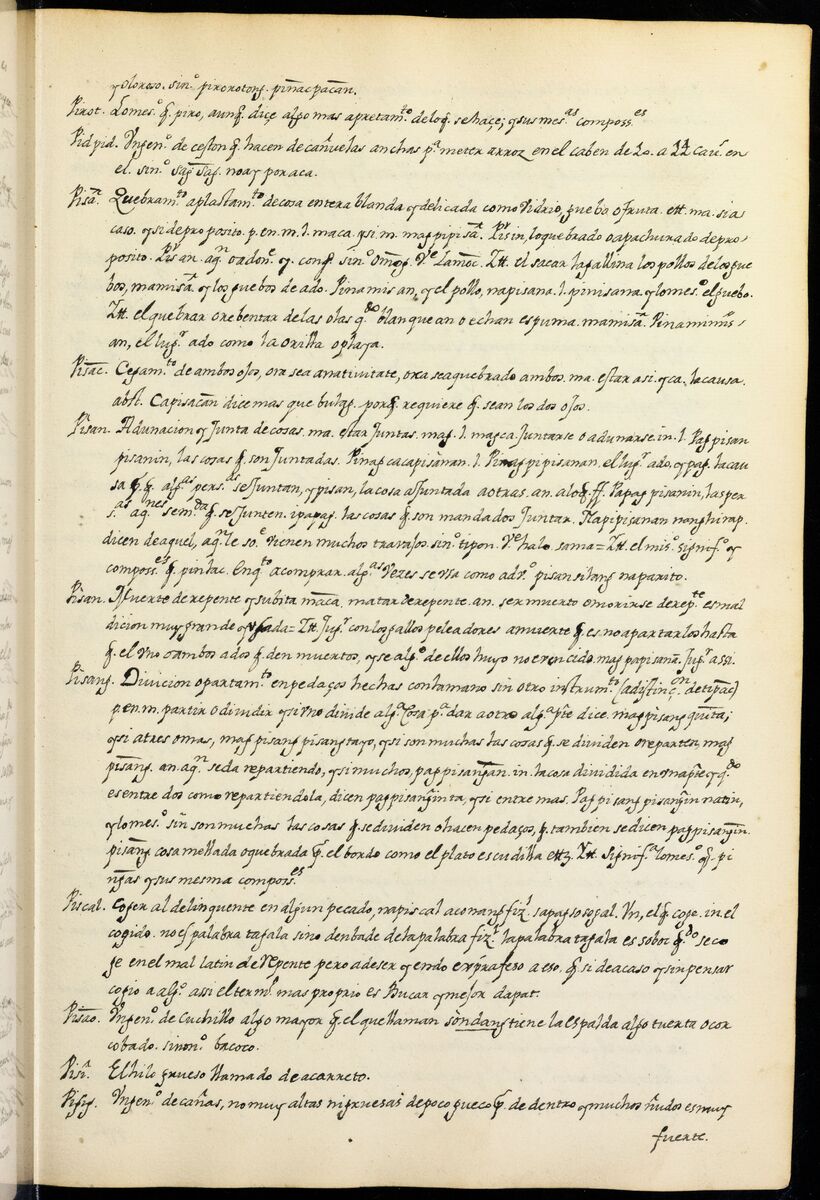 y oloroso. sin.º pirorotong. pinacpacan.
Pirot. Lo mes.º q. piro, aunq. diçe algo mas apretam.to de loq. se haçe; y sus mes.as composs.es
Pidpid. Un gen.º de ceston q. hacen de cañuelas anchas p.ª meter arroz en el caben de 20. a 24 cau.s en
el. sin.º sag sag. noay por aca.
Pisã. Quebram.to aplastam.to de cosa entera blanda y delicada como vidrio, guebo o fruta. ett. ma. si a
caso. y si de proposito. p. en. m. l. maca. y si. m. mag pipisã. Pisin, lo quebrado o apachurado de pro-
posito. Pisan. aq.n o adon.e y. conq. sin.º Omog. Ve lamoc. Itt. el sacar la gallina los pollos de los gue
bos, mamisã. y los guebos de ado. Pinamisan, y el pollo, napisana. l. pinisana. y lo mes.º el guebo.
Itt. el quebrar o rebentar de las olas q.do blanquean o echan espuma. mamisã. Pinamimis-
an, el lug.r ado como la orilla o playa.
Pisac. Cegam.to de ambos ojos, ora sea a natiuitate, ora sea quebrado ambos. ma. estar asi. y ca. la causa.
abst. Capisacan dice mas que bulag. porq. requiere q. sean los dos ojos.
Pisan. Adunacion y Junta de cosas. ma. estar Juntas. mag. l. magca. Juntarse o adunarse. in. l. Pagpisan
pisanin, las cosas q. son Juntadas. Pinagcacapisanan. l. Pinagpipisanan. el lug.r ado. y pag. la cau
sa p.r q. alg.as pers.as se Juntan, y pisan, la cosa a Juntada a otras. an. aloq. ff. Papag pisanin, las per
s.as aq.nes se m.da q. se Junten. ipapag. las cosas q. son mandados Juntar. Napipisanan nang hirap.
dicen de aquel, aq.n le so.e vienen muchos trauajos. sin.º tipon. Ve halo. sama = Itt. el mis.º signif.º y
composs.es q. pintac. En q.to a comprar alg.as vezes se usa como adv.º pisan silang naparito.
Pisan. Muerte de repente y subita maca. matar de repente. an. ser muerto o morirse de rep.te es mal
dicion muy grande y usada = Itt. Jug.r con los gallos peleadores a muerte q. es no apartarlos hasta
q. el uno o ambos a dos q. den muertos, y se alg.º de ellos huyo no era uencido. mag papisanã. Jug.r assi.
Pisang. Divicion o partam.to en pedaços hechas con la mano sin otro instrum.to (a distinc.on de tipac)
p. en. m. partir o dividir y si uno divide alg.ª cosa p.ª dar a otro alg.ª pte dice. mag pisang quita;
y si a tres o mas, mag pisang pisang tayo, y si son muchas las cosas q. se dividen o reparten, mag
pisang. an. aq.n se da repartiendo, y si muchos, pagpisangan. in. la cosa dividida en una pte y q.do
es entre dos como repartiendola, dicen pagpisangin ta, y si entre mas. Pagpisang pisangin natin,
y lo mes.º sin son muchas las cosas q. se dividen o hacen pedaços, q. tambien se dicen pagpisangin.
pisang cosa mellada o quebrada p.r el bordo como el plato escudilla ettz. Itt. signif.ª lo mes.º q. pi
ngas y sus mesma composs.es
Piscal. Coger al delinquente en algun pecado, napiscal aco nang fiz.l sa pagsosogal. Un, el q. coge. in. el
cogido. no es palabra tagala sino deribade de la palabra fiz.l la palabra tagala es soboc q.do se co
ge en el mal latin de repente pero a de ser yendo ex profeso a eso. q. si de acaso y sin pensar
cogio a alg.º assi el term.º mas proprio es Bucar y mejor dapat.
Pisao. Un gen.º de cuchillo algo mayor q. el que llaman sondang tiene la espalda algo tuerta o cor
cobado. sinon.º bacoco.
Pisi. El hilo grueso llamado de acarreto.
Pising. Un gen.º de cañas, no muy altas ni gruesas de poco gueco p.r de dentro y muchos ñudos es muy
fuerte.